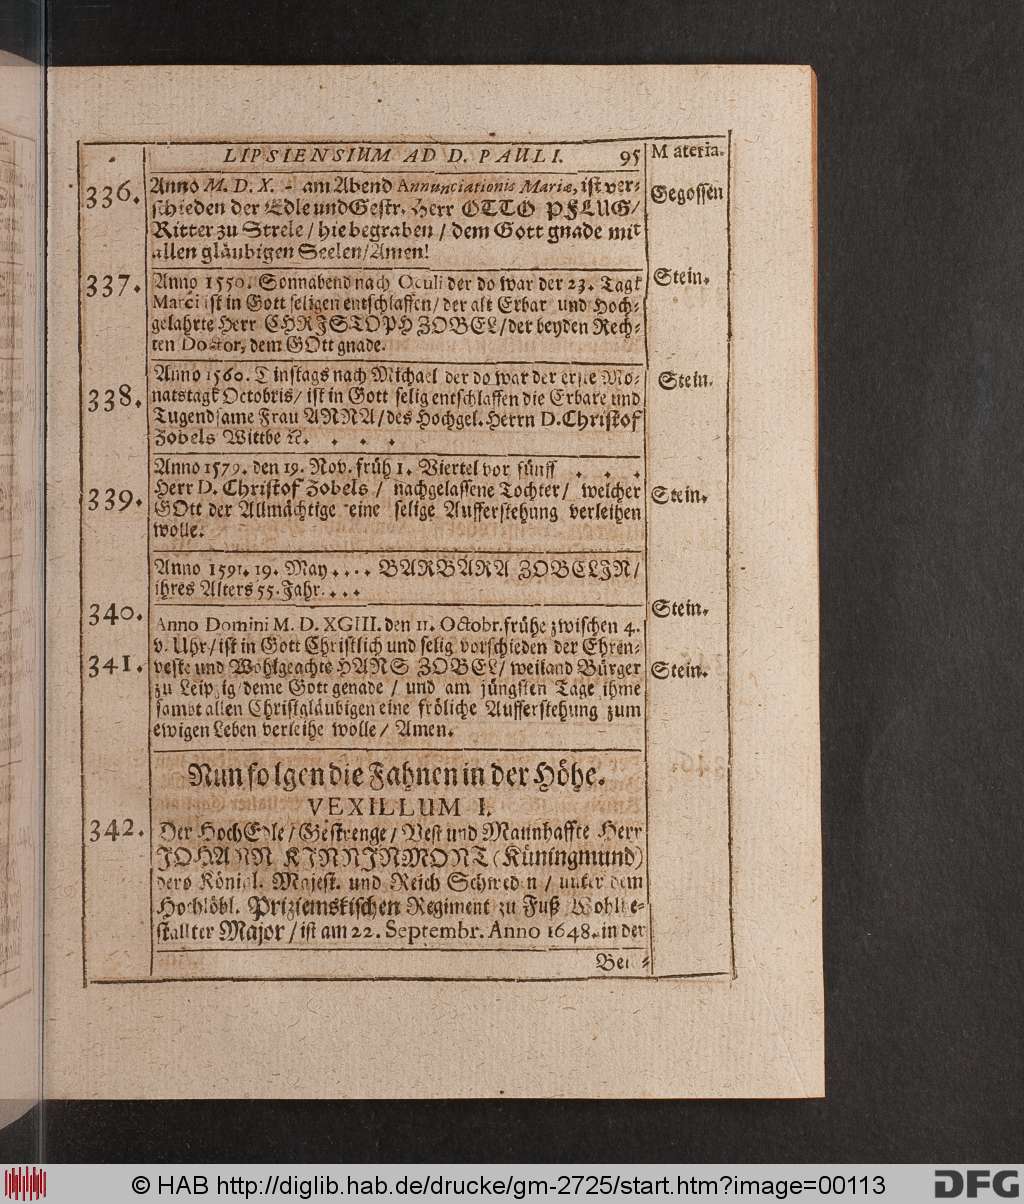 LIPSIENSIUM AD D. PAULI. 95 Materia.
336. Anno M. D. X. - am Abend Annunciationis Mariæ, ist ver- Gegossen
schieden der Edle und Gestr. Herr OTTO PFLUG/
Ritter zu Strele / hie begraben / dem Gott gnade mit
allen gläubigen Seelen/Amen!
337. Anno 1550. Sonnabend nach Oculi der do war der 23. Tagk Stein.
Marci ist in Gott seligen entschlaffen/ der alt Erbar und Hoch-
gelahrte Herr CHRISTOPH ZOBEL/der beyden Rech-
ten Doctor, dem GOtt gnade.
338. Anno 1560. Dinstags nach Michael der do war der erste Mo- Stein.
natstagk Octobris/ ist in Gott selig entschlaffen die Erbare und
Tugendsame Frau ANNA/des Hochgel. Herrn D. Christof
Zobels Wittbe ꝛc. . . . .
339. Anno 1579. den 19. Nov. früh 1. Viertel vor fünff . . . Stein.
Herr D. Christof Zobels / nachgelassene Tochter/ welcher
GOtt der Allmächtige eine selige Aufferstehung verleihen
wolle.
340. Anno 1591. 19. May . . . . BARBARA ZOBELIN/ Stein.
ihres Alters 55. Jahr. . . .
341. Anno Domini M. D. XGIII. den 11. Octobr. frühe zwischen 4. Stein.
v. Uhr/ ist in Gott Christlich und selig vorschieden der Ehren-
veste und Wohlgeachte HANS ZOBEL/ weiland Bürger
zu Leipzig/deme Gott genade / und am jüngsten Tage ihme
sambt allen Christgläubigen eine fröliche Aufferstehung zum
ewigen Leben verleihe wolle/ Amen.
Nun folgen die Fahnen in der Höhe.
VEXILLUM I.
342. Der HochEdle/Gestrenge/ Vest und Mannhaffte Herr
JOHANN KINNINMONT (Küningmund)
dero Königl. Majest. und Reich Schweden / unter dem
Hochlöbl. Priziemskischen Regiment zu Fuß Wohlbe-
stallter Major / ist am 22. Septembr. Anno 1648. in der
© HAB http://diglib.hab.de/drucke/gm-2725/start.htm?image=00113 DFG